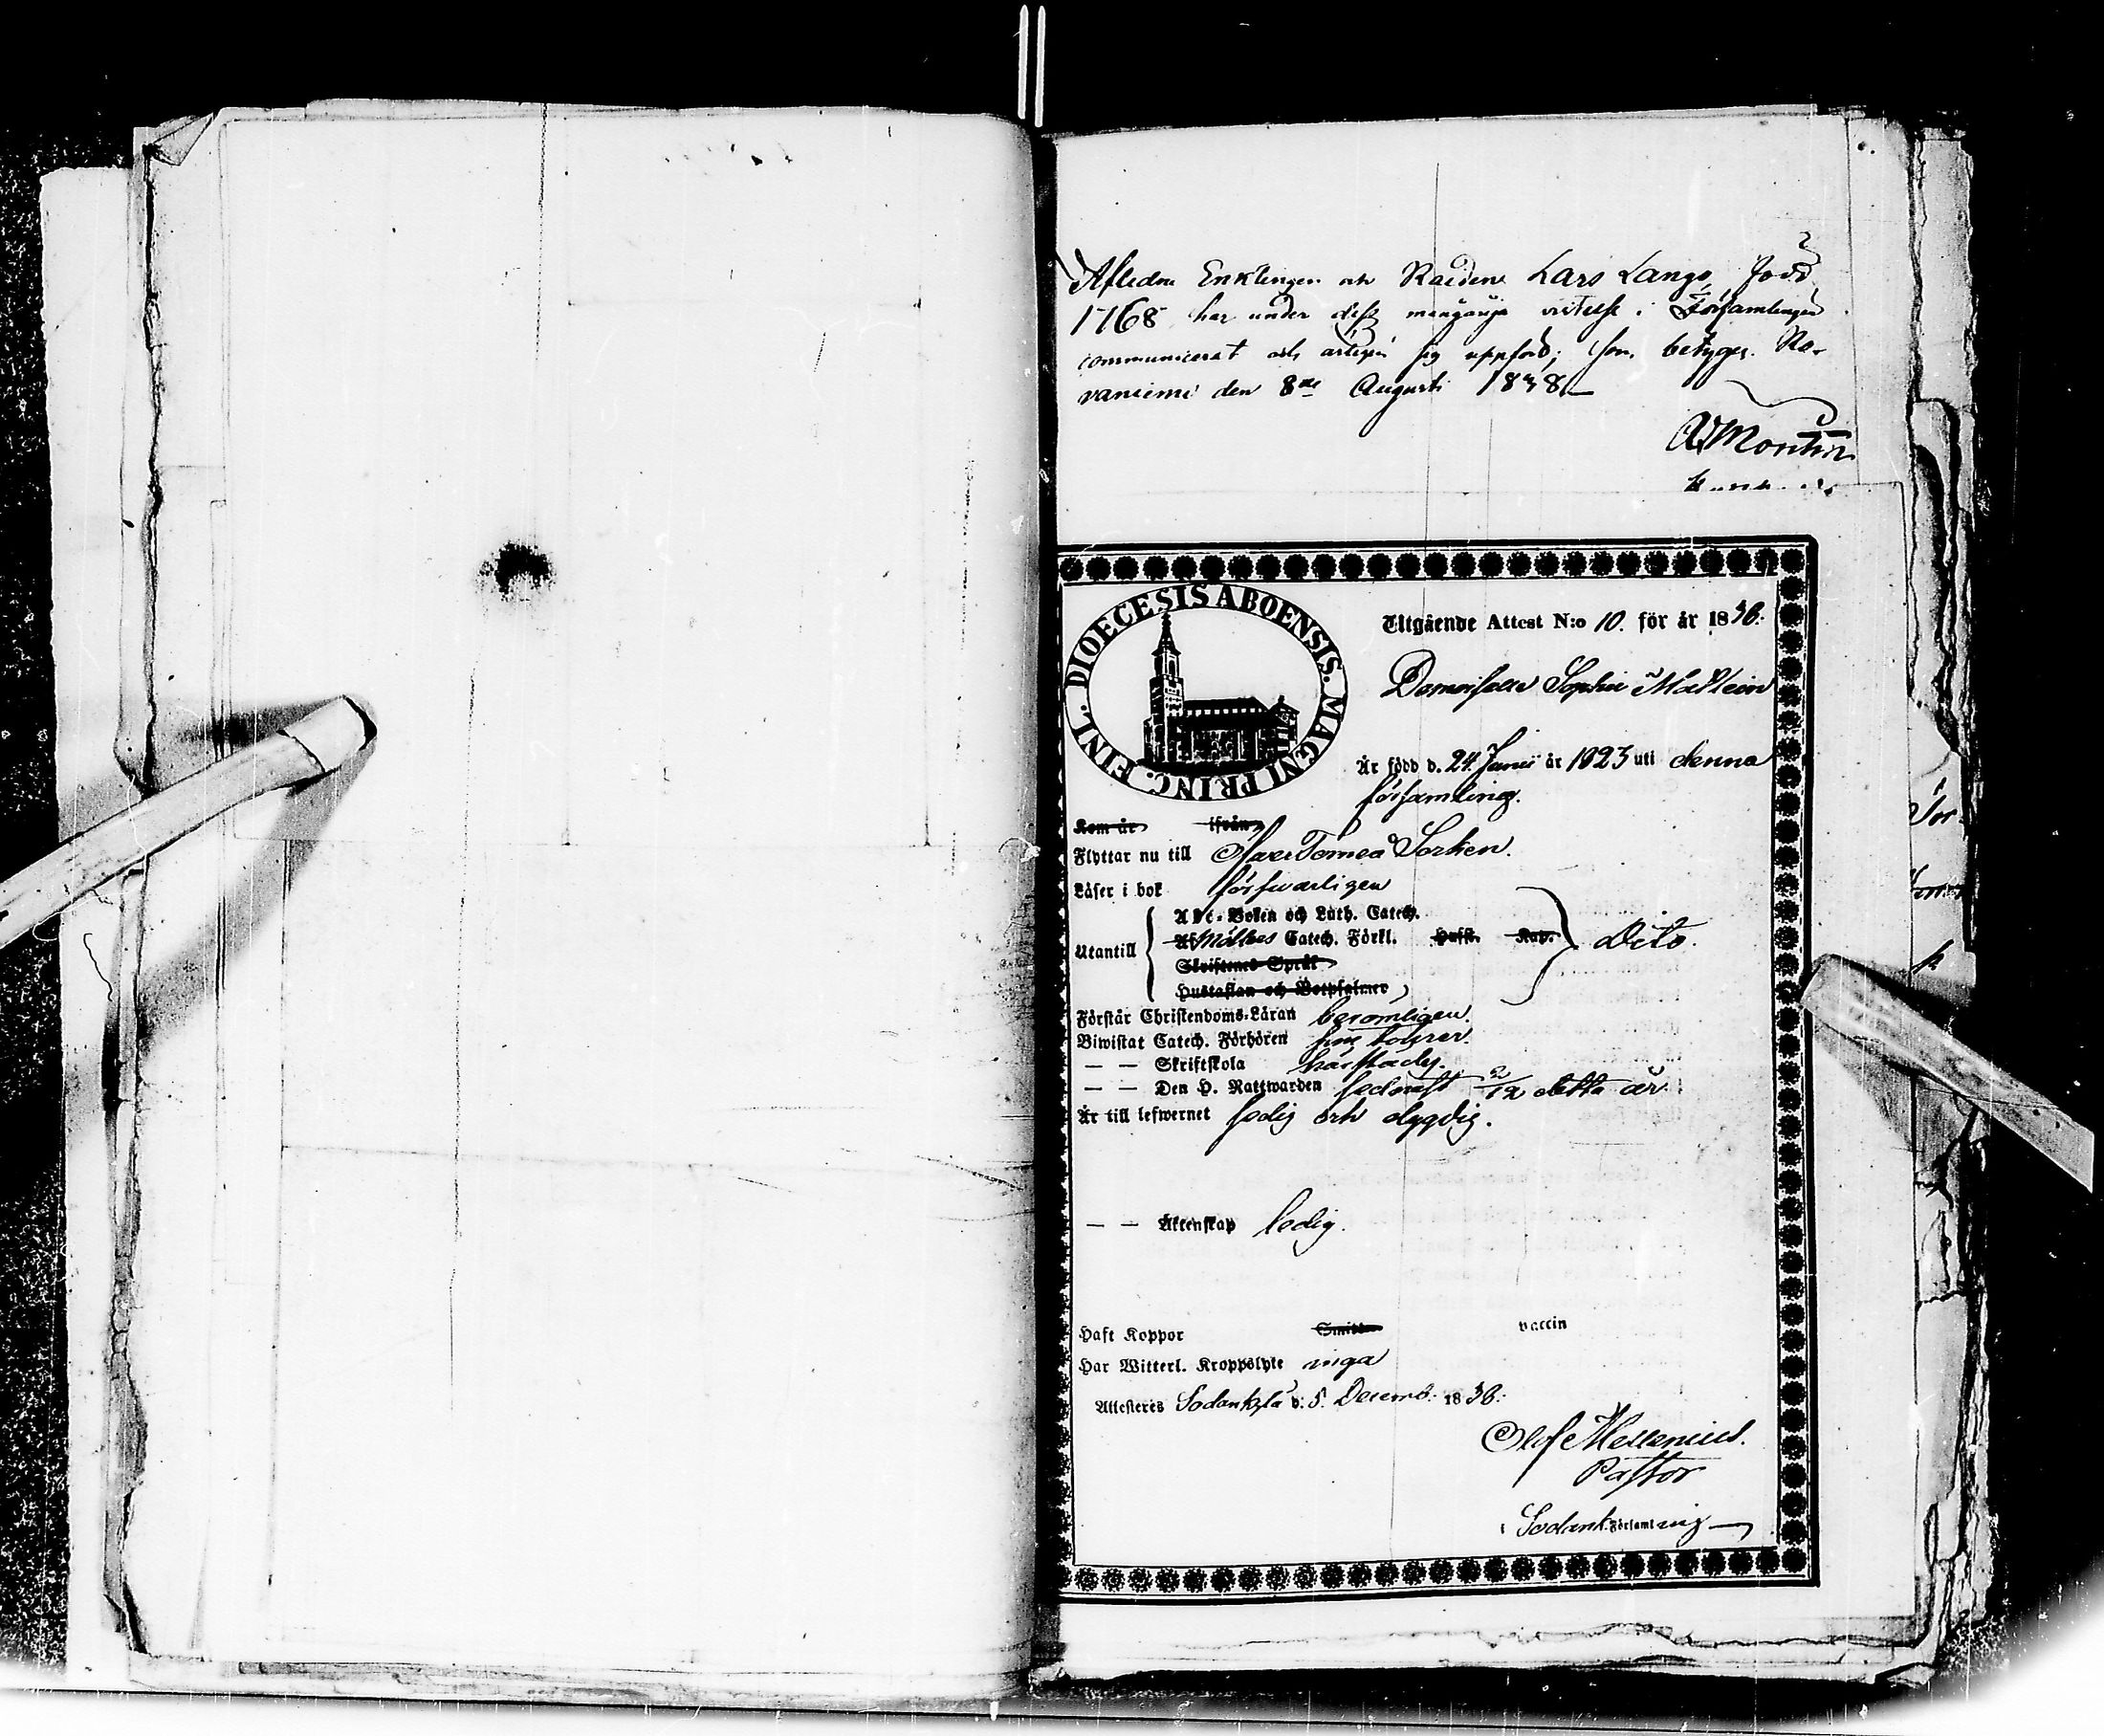 Afledne Enklingen och Lars Lango, född
1768 har under dess mångårige vistelse i Församlingen
communicerat och sig uppförd; som betygas. Ro-
vaniemi den 8de Augusti 1838
DIOECESIS ABOENSIS. MAGNI PRINC. FINL.
Utgående Attest N:o 10. för år 1838.
Sophie
Är född d. 24 Junii år 1823 uti denna
församling.
Kom år ifrån
Flyttar nu till Torneå Sorken.
Läser i bok försvarligen
Utantill
Abc-Boken och Luth. Catech.
Af Möllers Catech. Förkl. Hufst. Kap. Dito.
Skriftenes Språk
Hustaflan och Botpsalmer
Förstår Christendoms-Läran berömligen.
Biwistat Catech. Förhören
— — Skriftskola härstädes.
— — Den H. Nattwarden sednast 2/12 detta år.
Är till lefwernet sedig och dygdig.
— — Äktenskap ledig.
Haft Koppor Smitto vaccin
Har Witterl. Kroppslyte inga
Attesteres Sodankylä d. 5. Decemb. 1838.
Olof Mellenius.
Pastor
i Sodank. Församling